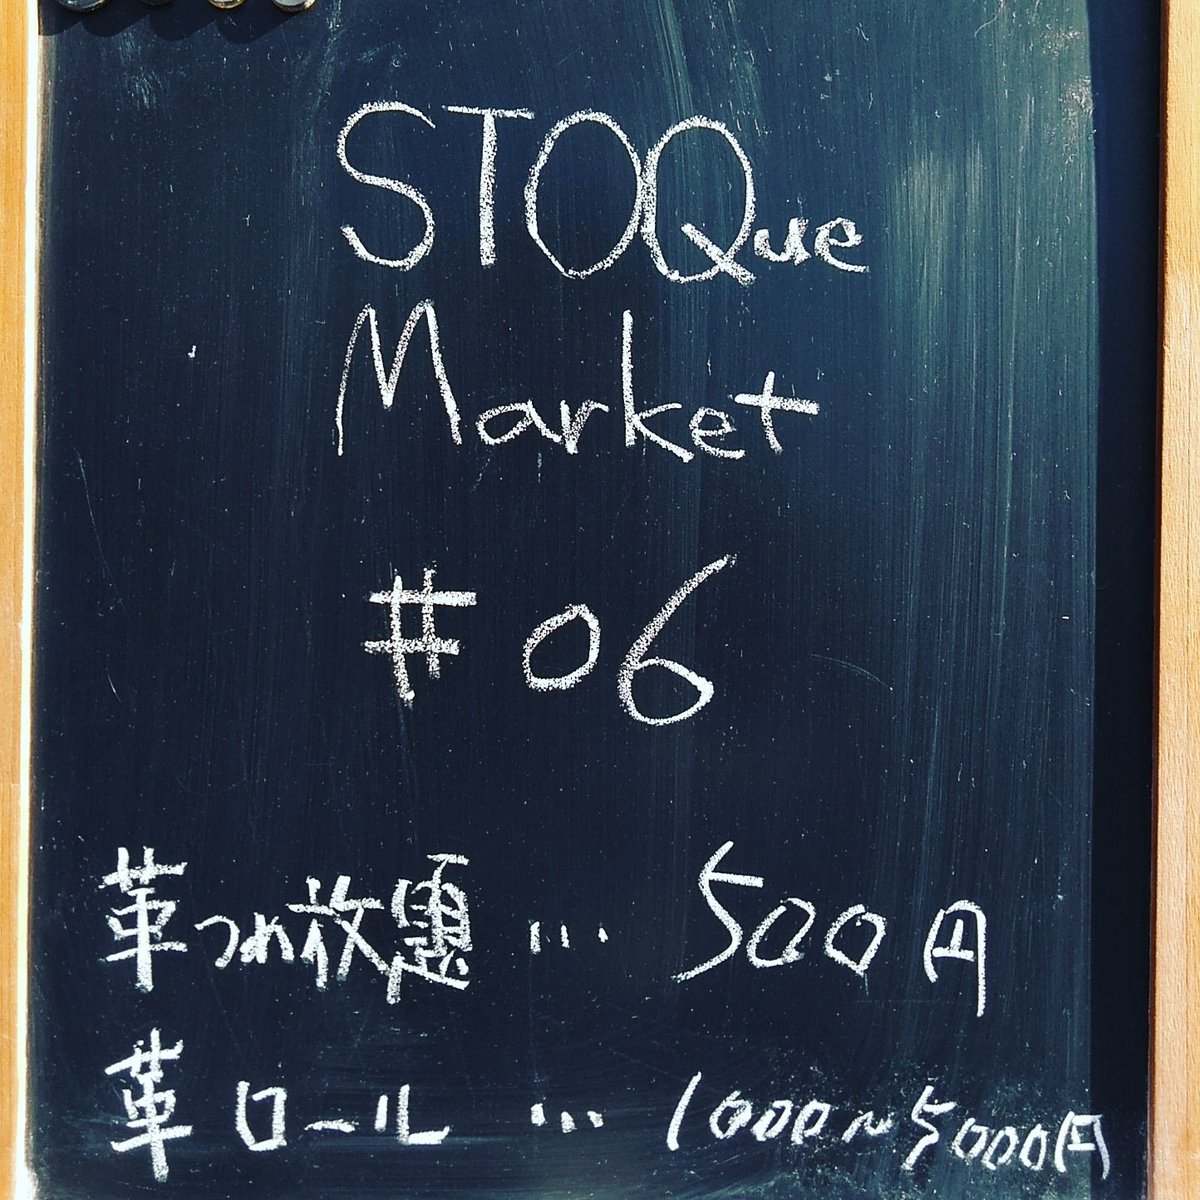 STOQue
Market
# 06
革つめ放題 … 500円
革ロール … 1000~5000円